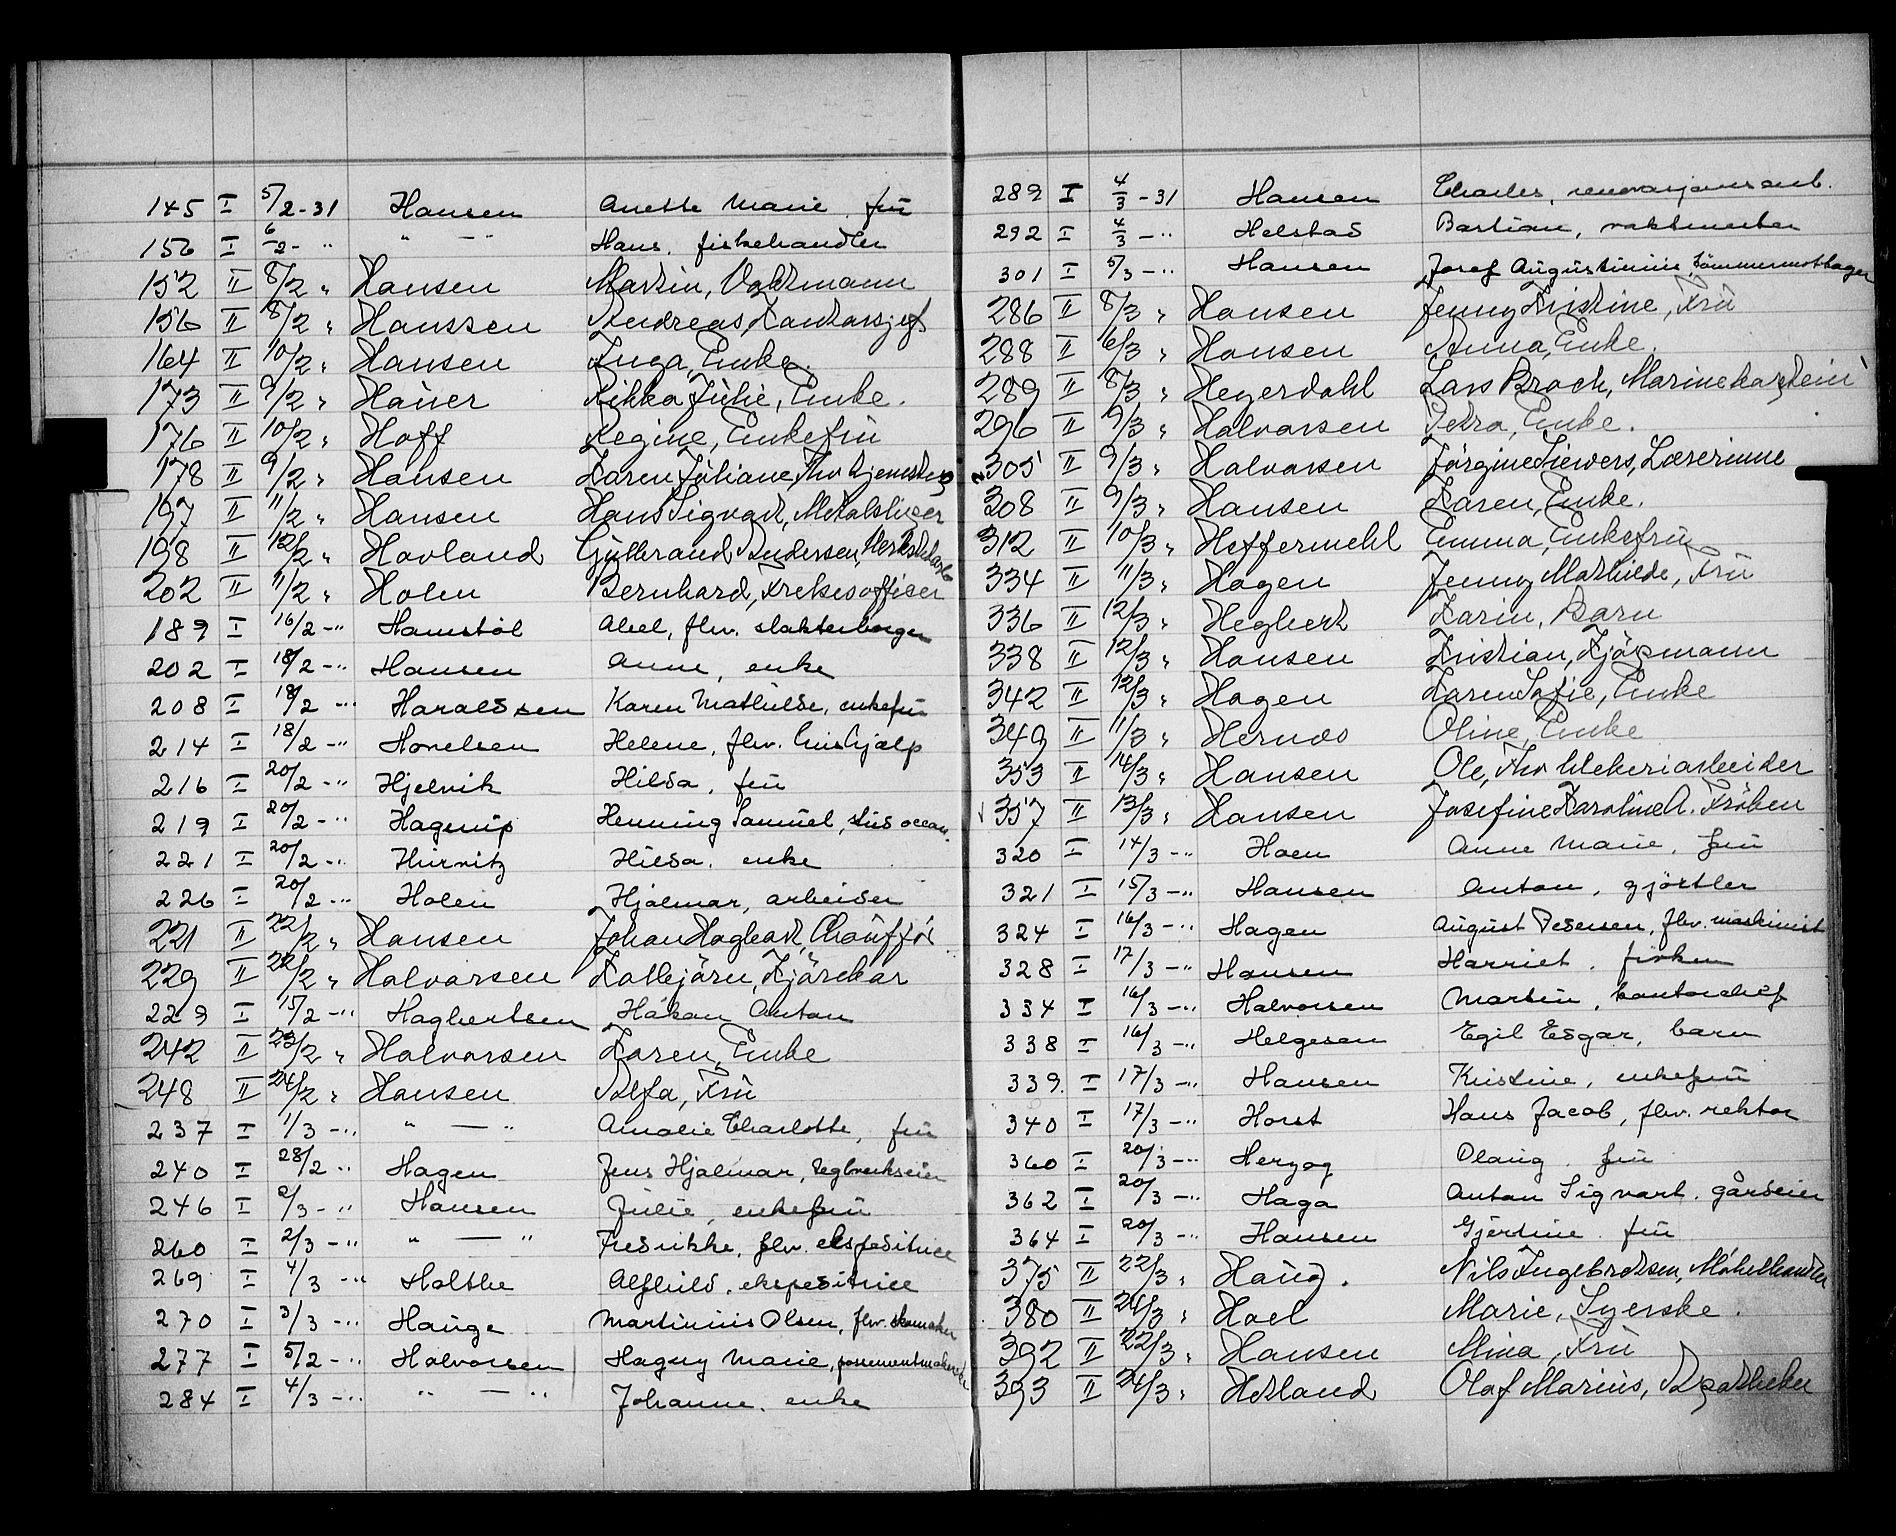 145 I 5/2-31 Hansen Anette Marie, frü
156 I 6/2- " " — " Hans, fiskehandler
152 II 8/2 " Hansen Martin, Vaktmann
156 II 8/2 " Hanssen Andreas, Kontorsjef
164 II 10/2 " Hansen Inga, Enke.
173 II 9/2 " Haüer Rikka Jülie, Enke.
176 II 10/2 " Hoff Regine, Enkefrü
178 II 9/2 " Hansen Karen Jüliane, Fhv
197 II 11/2 " Hansen Hans Sigvart, Metalsliper
198 II 12/2 " Havland Gülbrand Andersen,
202 II 11/2 " Holm Bernhard, Frelsesofficer
189 I 16/2 - " Hamstöl Abel, fhv.
202 I 18/2 - " Hansen Anne, enke
208 I 18/2 - " Haraldssen Karen Mathilde, enkefrü
214 I 18/2 - " Hovelsen Helene, fhv. hüshjælp
216 I 20/2 - " Hjelvik Hilda, frü
219 I 20/2 - " Hagerüp Henning Samüel, stüd. oecon.
221 I 20/2 - " Hürvitz Hilda, enke
226 I 20/2 - " Holen Hjalmar, arbeider
221 II 22/2 " Hansen Johan Hagbart, Chauffør
229 II 22/2 " Halvorsen Kolbjörn, Kjörekar
229 I 15/2 - " Hagbertsen Håkon Anton
242 II 23/2 " Halvorsen Karen, Enke
248 II 24/2 " Hansen Valfa, Frü
237 I 1/3 - " " — " Amalie Charlotte, frü
240 I 28/2 " Hagen Jens Hjalmar, teglverkseier
246 I 2/3 - " Hansen Jülie, enkefrü
260 I 2/3 - " " — " Fredrikke, fhv. ekspeditrice
269 I 4/3 - " Holthe Alfhild, ekspeditrice
270 I 3/3 - " Haüge Martinius Olsen, fhv. skomaker
277 I 5/2 - " Halvorsen Hagny Marie,
284 I 4/3 - " " — " Johanne, enke
289 I 4/3 - 31 Hansen Charles, renovasjonsarb.
292 I 4/3 - " Helstad Bastian, vaktmester
301 I 5/3 - " Hansen Josef Augustinius, tömmermottager
286 II 8/3 " Hansen Jenny Kristine, Frü
288 II 6/3 " Hansen Anna, Enke.
289 II 8/3 " Heyerdahl Lars Broch, Marinekaptein
296 II 9/3 " Halvorsen Petra, Enke.
305 II 9/3 " Halvorsen Jörgine Siewers, Lærerinne
308 II 9/3 " Hansen Karen, Enke.
312 II 10/3 " Heffermehl Emma, Enkefrü
334 II 11/3 " Hagen Jenny Mathilde, Frü
336 II 12/3 " Hegberk Karin, Barn
338 II 12/3 " Hansen Kristian, Kjöpmann
342 II 12/3 " Hagen Karen Sofie, Enke
349 II 11/3 " Hernæs Oline, Enke
353 II 14/3 " Hansen Ole, Fhv blekeriarbeider
357 II 13/3 " Hansen Josefine Karoline A. Fröken
320 I 14/3 - " Hoen Anne Marie, frü
321 I 15/3 - " Hansen Anton, gjörtler
324 I 16/3 - " Hagen August Pedersen, fhv. maskinist
328 I 17/3 - " Hansen Harriet, fröken
334 I 16/3 - " Halvorsen Martin, kontorchef
338 I 16/3 - " Helgesen Egil Edgar, barn
339. I 17/3 - " Hansen Kristine, enkefrü
340 I 17/3 - " Horst Hans Jacob, fhv. rektor
360 I 20/3 - " Herzog Olaug, frü
362 I 20/3 - " Haga Anton Sigvart, gårdeier
364 I 20/3 - " Hansen Gjertine frü
375 II 22/3 " Haüg. Nils Ingebretsen, Möbelhandler
380 II 24/3 " Hoel Marie, Syerske.
392 II 22/3 " Hansen Mina, Frü
393 II 24/3 " Hetland Olaf Marius, Apotheker